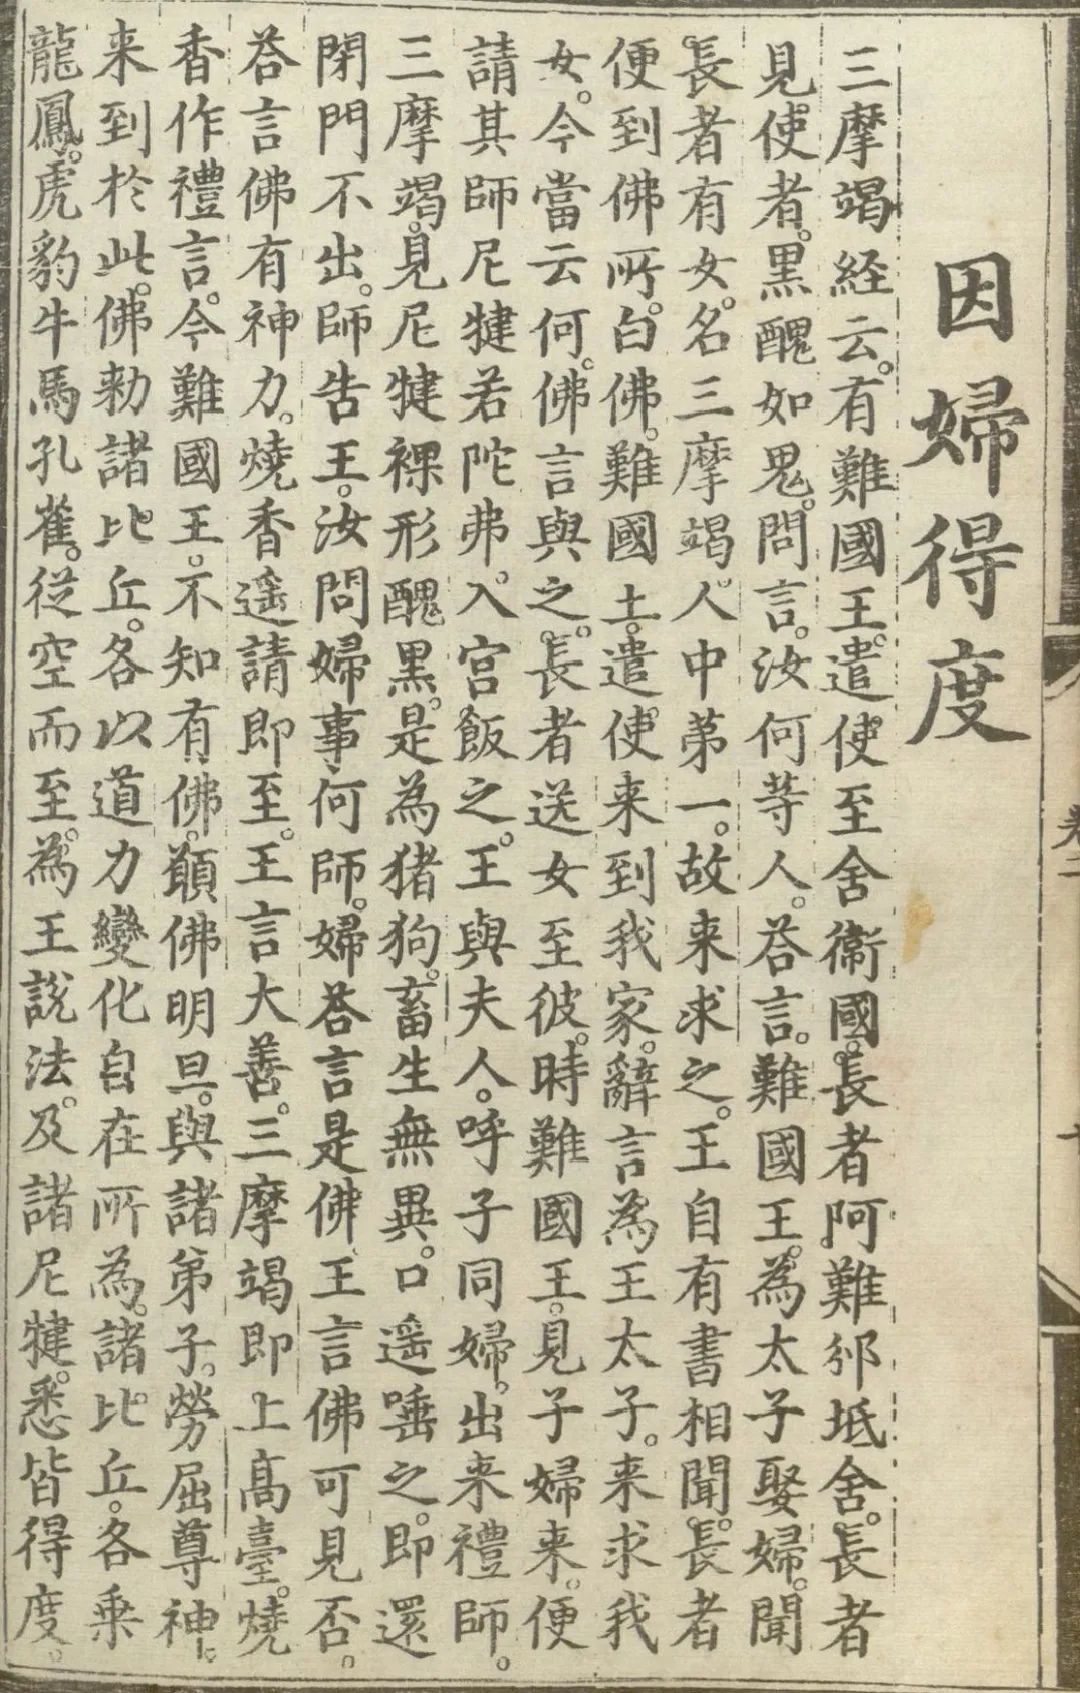 因婦得度
三摩竭経云。有難國王。遣使至舍衞國。長者阿難邠坻舍。長者
見使者。黒醜如鬼。問言。汝何等人。荅言。難國王。為太子娶婦。聞
長者有女。名三摩竭。人中苐一。故来求之。王自有書相聞。長者
便到佛所。白佛。難國土。遣使来到我家。辭言為王太子。来求我
女。今當云何。佛言與之。長者送女至彼。時難國王。見子婦来。便
請其師尼犍若陀弗。入宫飯之。王與夫人。呼子同婦。出来禮師。
三摩竭。見尼犍裸形醜黒。是為猪狗。畜生無異。口遥唾之。即還
閉門不出。師告王。汝問婦事何師。婦荅言是佛王言佛可見否。
荅言佛有神力。燒香遥請即至。王言大善。三摩竭即上髙臺。燒
香作禮言。今難國王。不知有佛。願佛明旦。與諸弟子。勞屈尊神。
来到於此。佛勑諸比丘。各以道力變化自在所為。諸比丘。各乗
龍鳳。虎豹牛馬孔雀。從空而至。為王說法。及諸尼犍。悉皆得度。
卷二